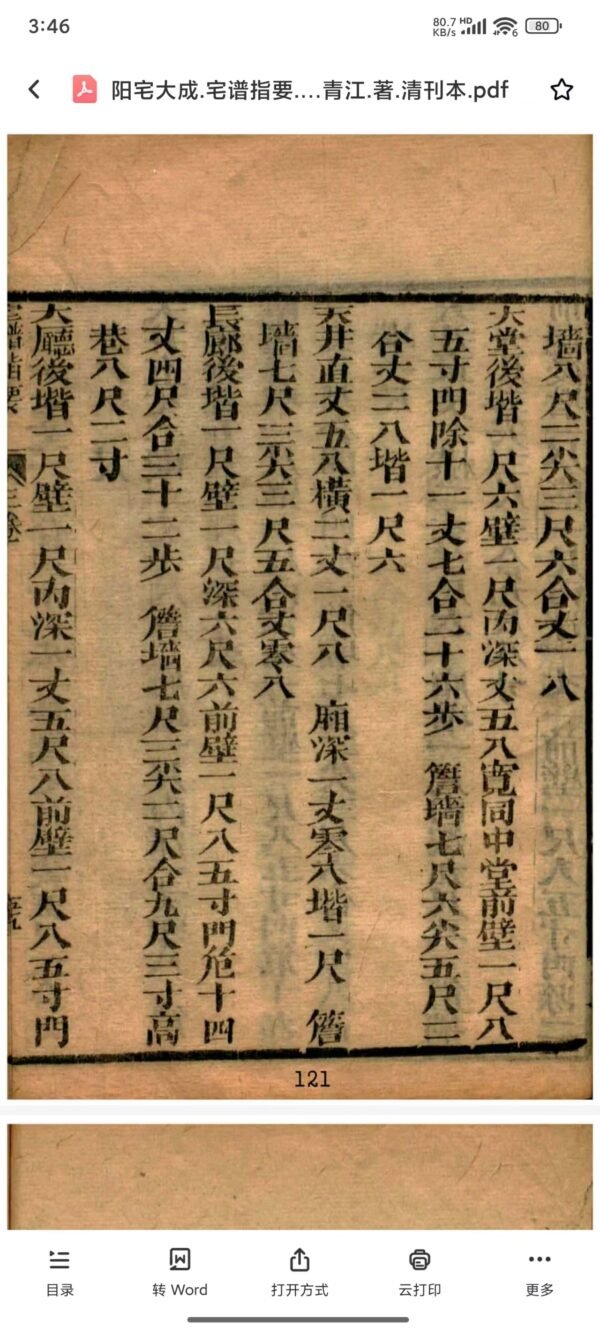 3:46
80.7 KB/s HD 6 80
阳宅大成.宅谱指要....青江.著.清刊本.pdf
墙八尺二尖三尺六合丈一八
大堂後堦一尺六壁一尺內深丈五八寬同中堂前壁一尺八
五寸門除十一丈七合二十六步 簷墻七尺六尖五尺二
合丈二八堦一尺六
天井直丈五八橫二丈一尺八 廂深一丈零八堦一尺 簷
墻七尺三尖三尺五合丈零八
長廊後堦一尺壁一尺深六尺六前壁一尺八五寸門危十四
丈四尺合三十二步 簷墻七尺三尖二尺合九尺三寸高
巷八尺二寸
大廳後堦一尺壁一尺內深一丈五尺八前壁一尺八五寸門
宅譜指要 三卷
121
目录
转 Word
打开方式
云打印
更多